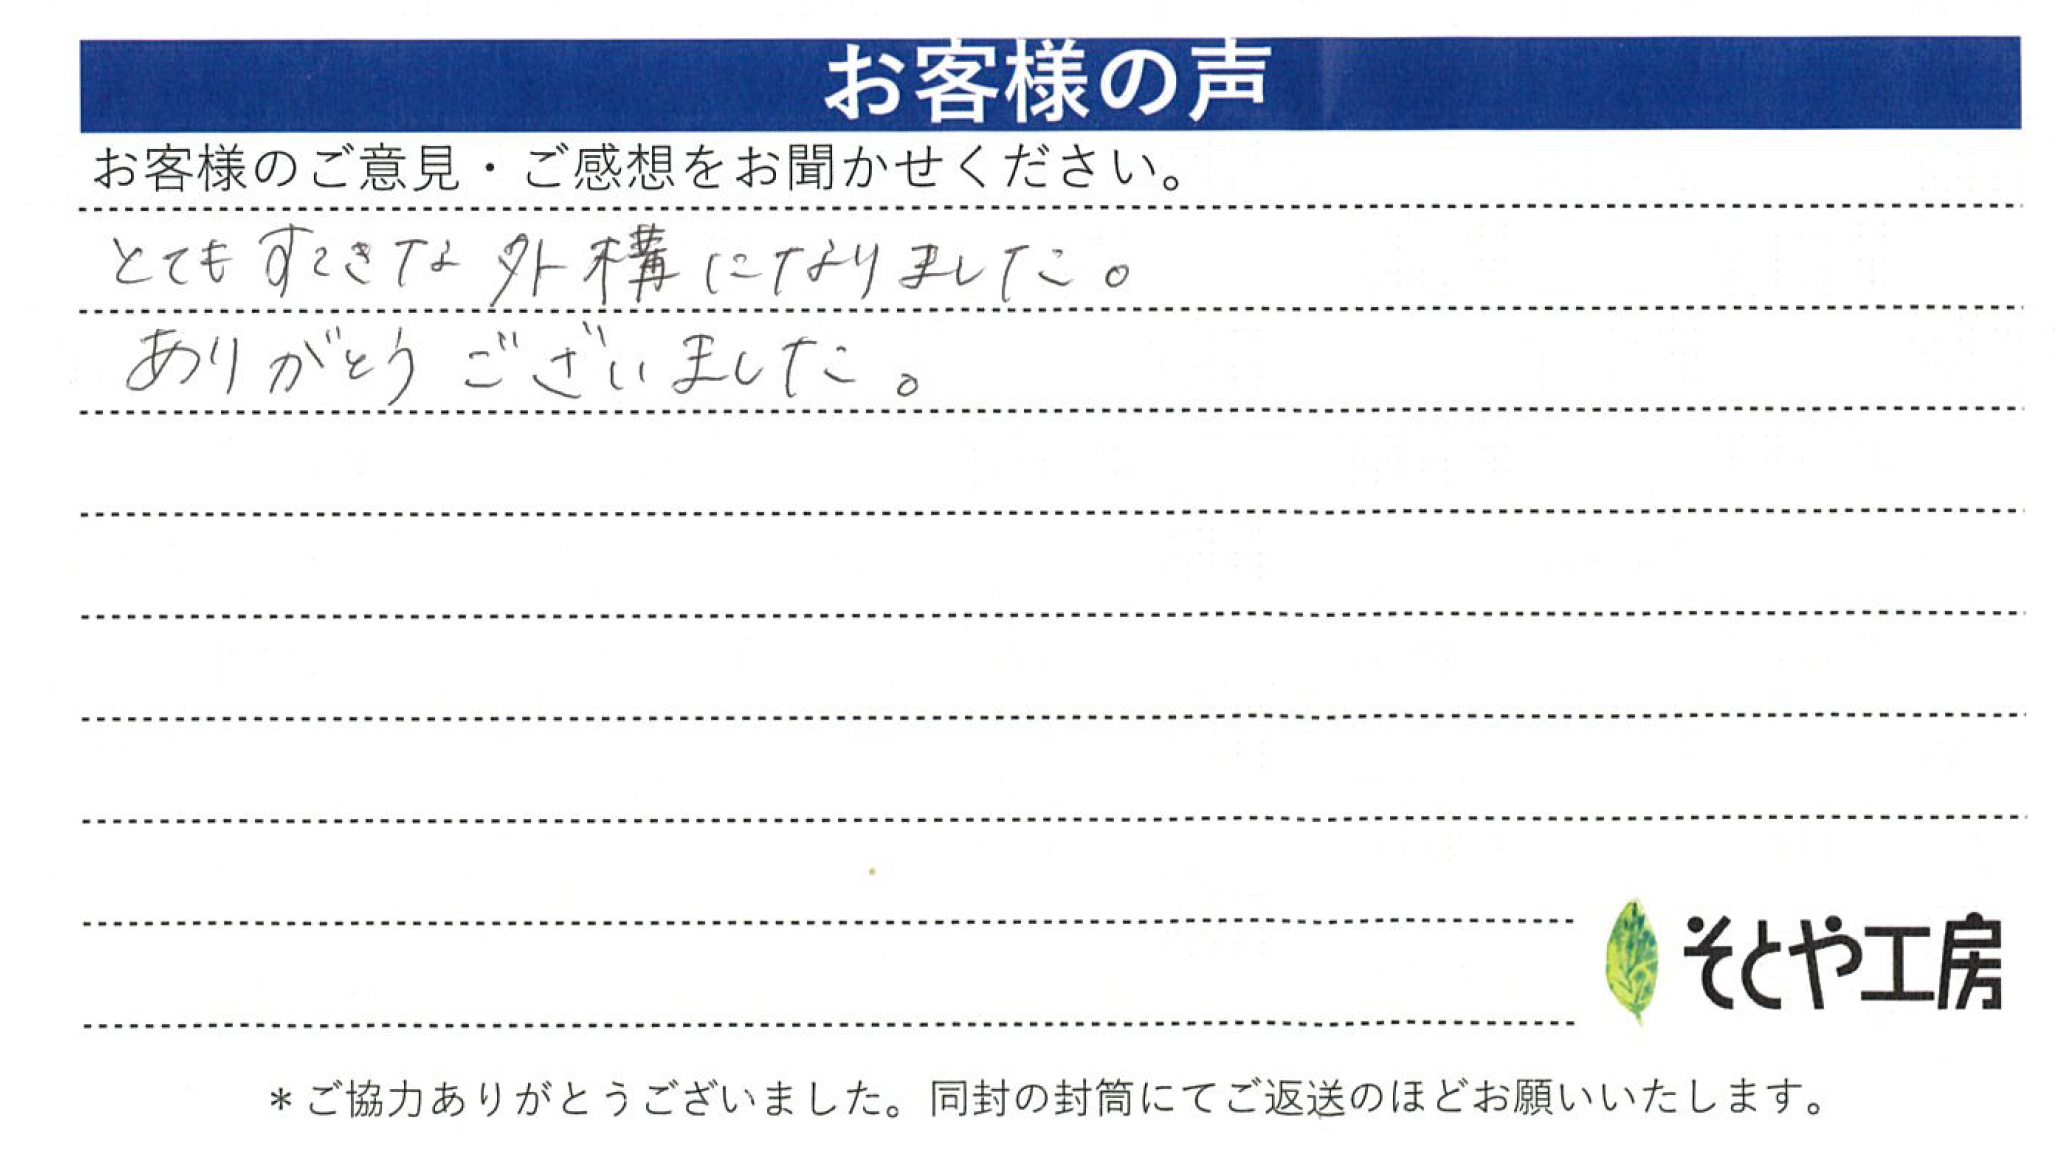 お客様の声
お客様のご意見・ご感想をお聞かせください。
とてもすてきな外構になりました。
ありがとうございました。
そとや工房
＊ご協力ありがとうございました。同封の封筒にてご返送のほどお願いいたします。